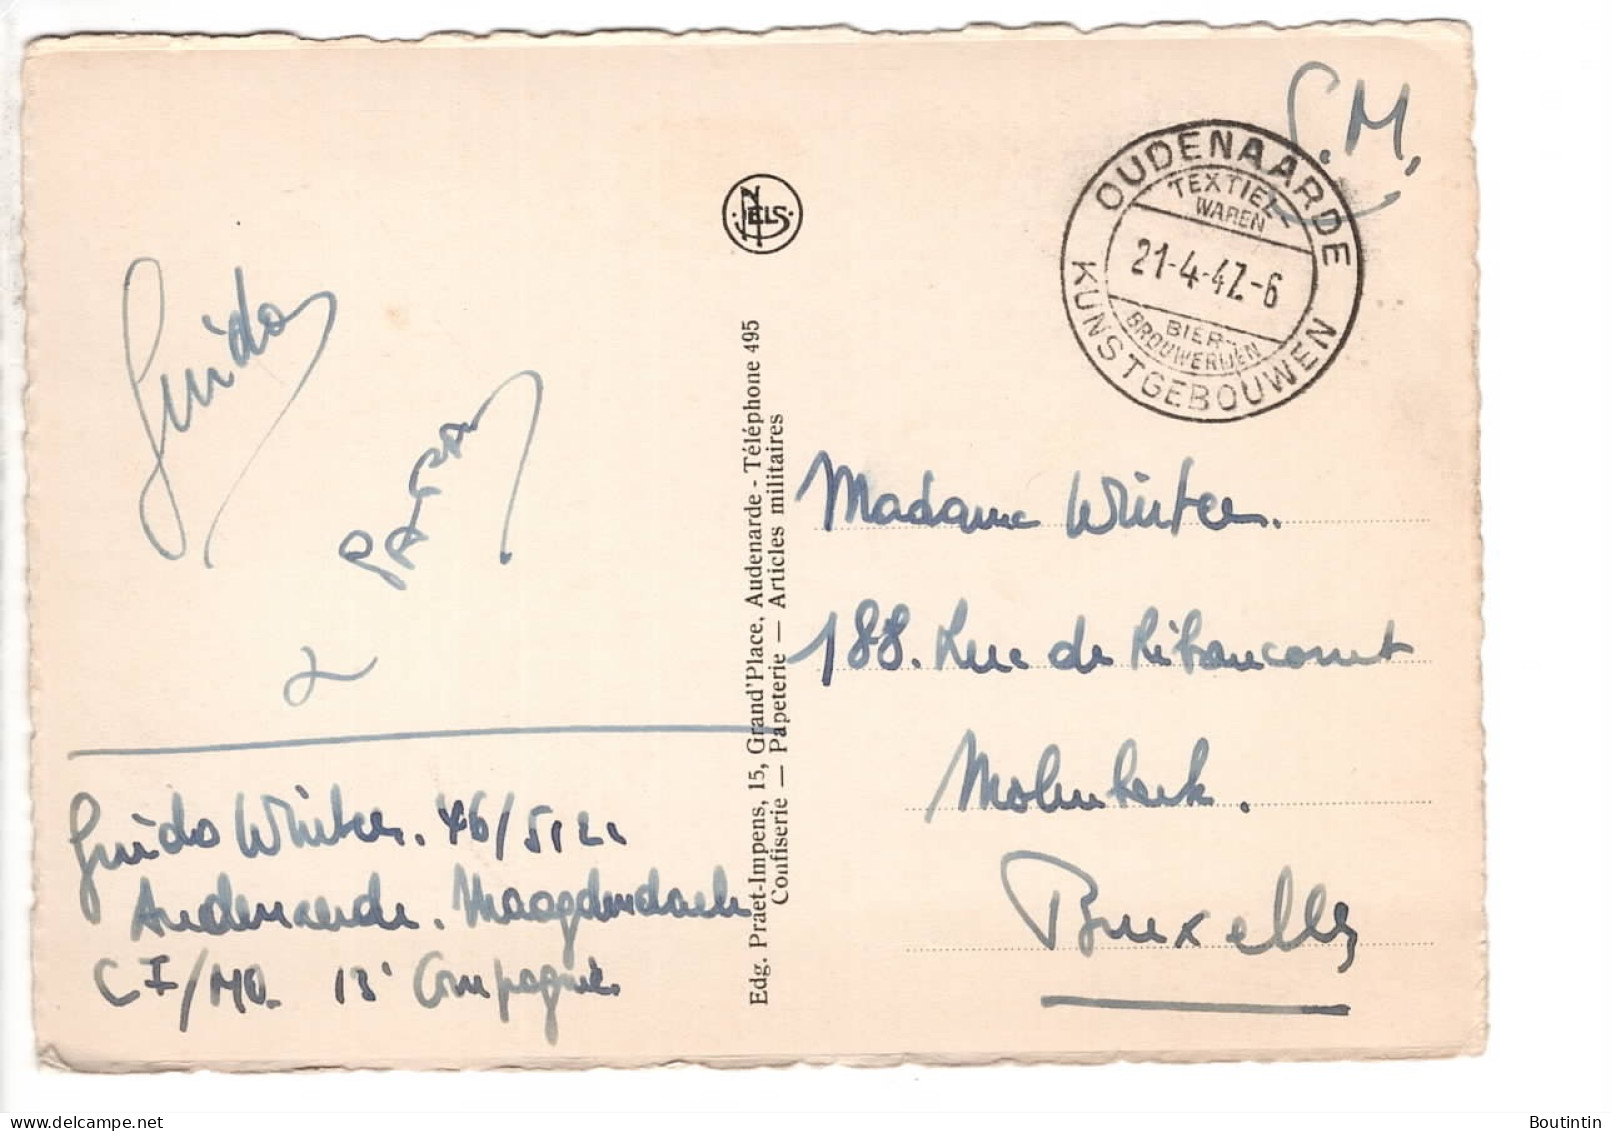 S.M.
OUDENAARDE
TEXTIEL
WAREN
21-4-47.-6
BIER-
BROUWERIJEN
KUNSTGEBOUWEN
NELS
Guido
Madame Winter.
188. Rue de Ribaucourt
Molenbeek.
Bruxelles
Guido Winter. 46/5122
Audenaerde. Maagdendaele
C I/MO. 13e Compagnie.
Edg. Praet-Impens, 15, Grand'Place, Audenarde - Téléphone 495
Confiserie — Papeterie — Articles militaires
delcampe.net
Boutintin